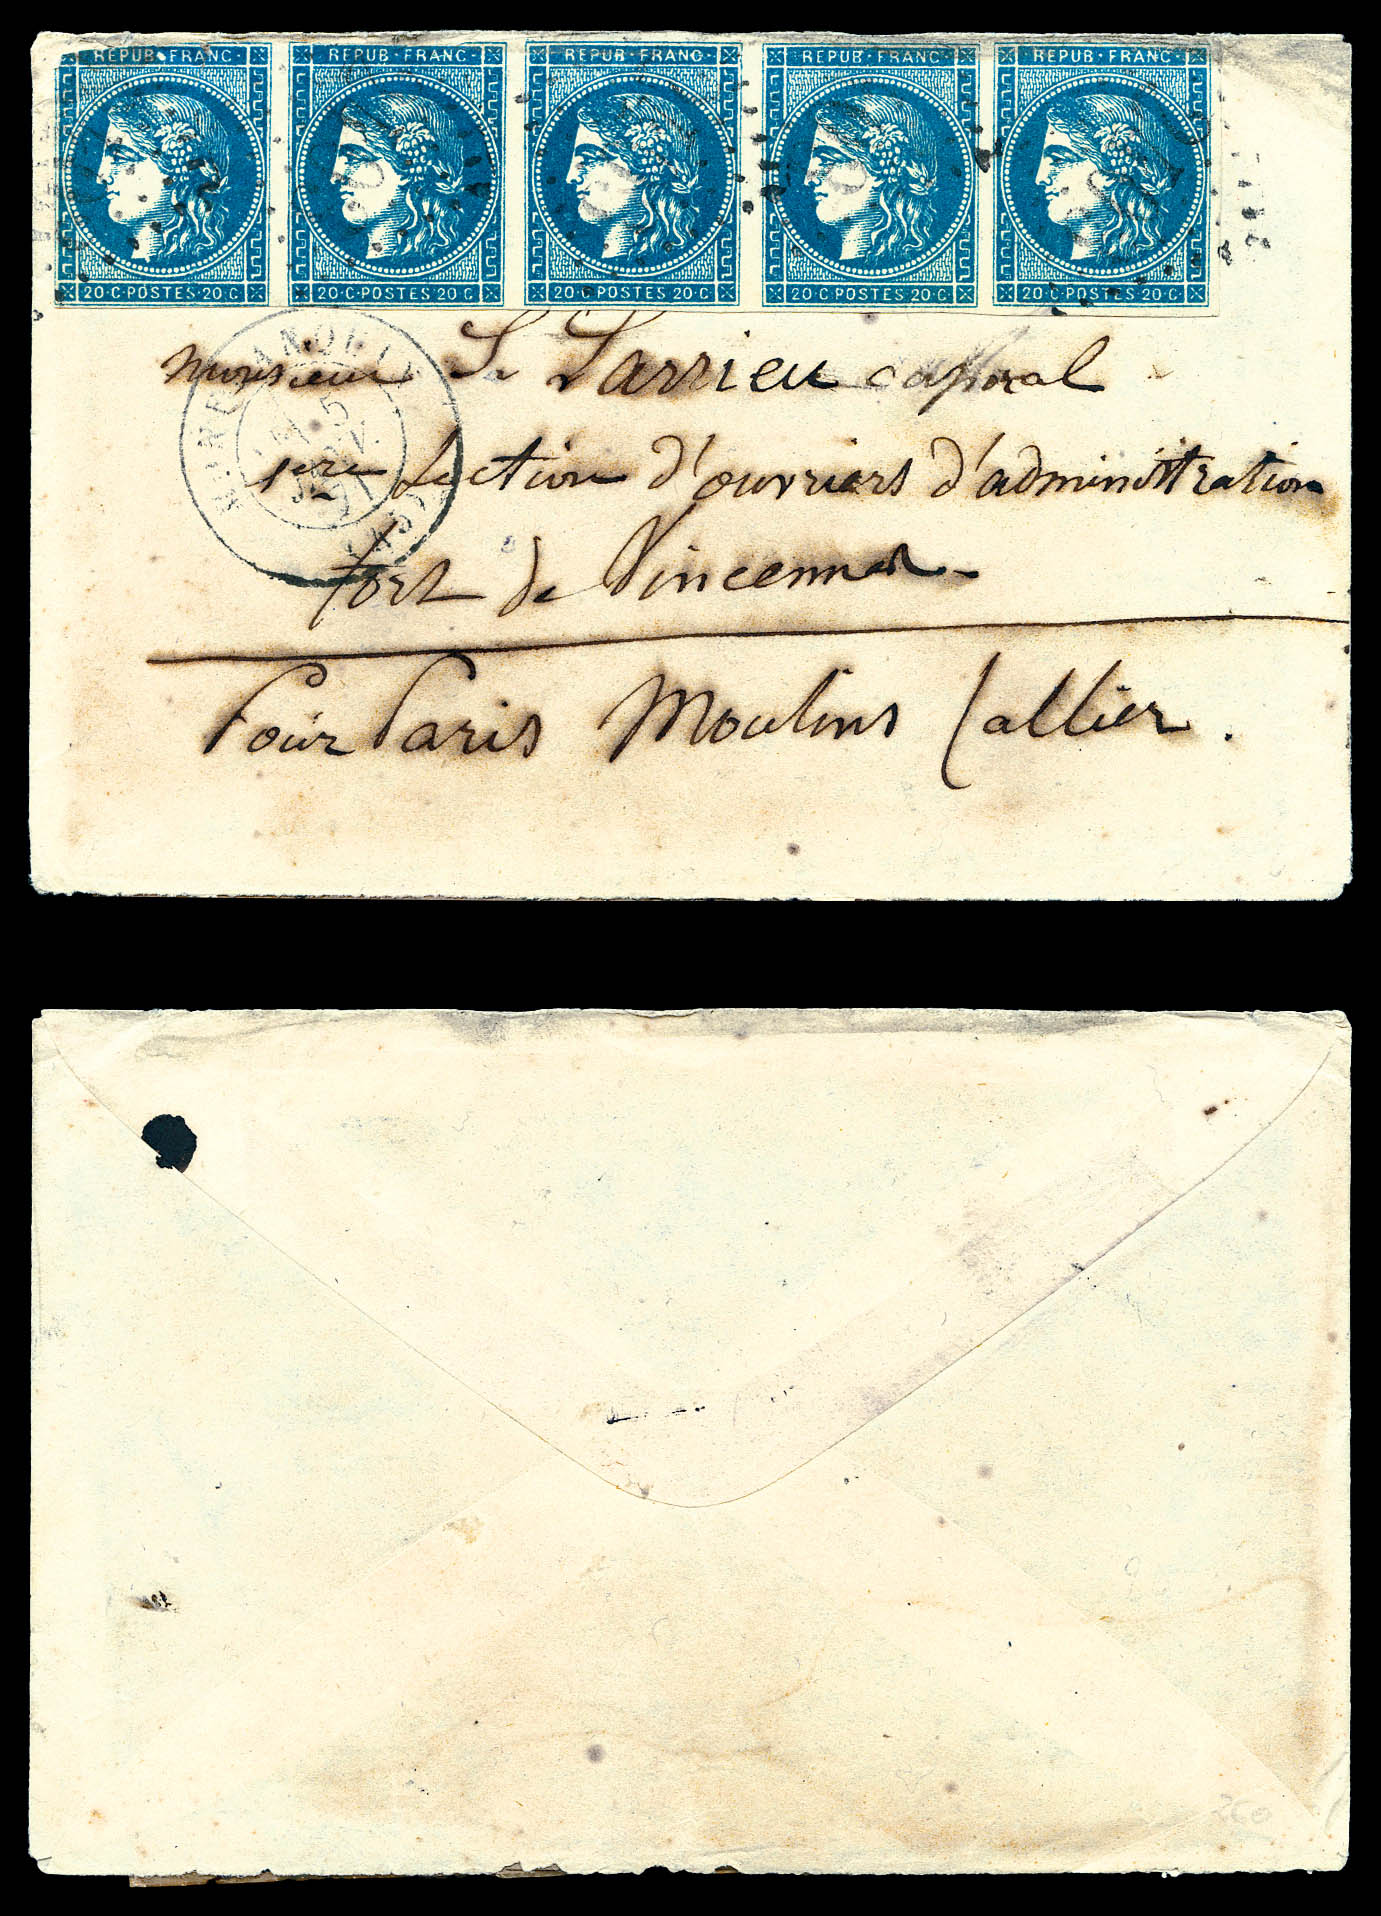 REPUB·FRANC· REPUB·FRANC· REPUB·FRANC· REPUB·FRANC· REPUB·FRANC·
20·C·POSTES·20·C 20·C·POSTES·20·C 20·C·POSTES·20·C 20·C·POSTES·20·C 20·C·POSTES·20·C
Monsieur S. Larrieu caporal
1ere Section d'ouvriers d'administration
fort de Vincennes
Pour Paris Moulins (allier.
5
JANV.
71
(45)